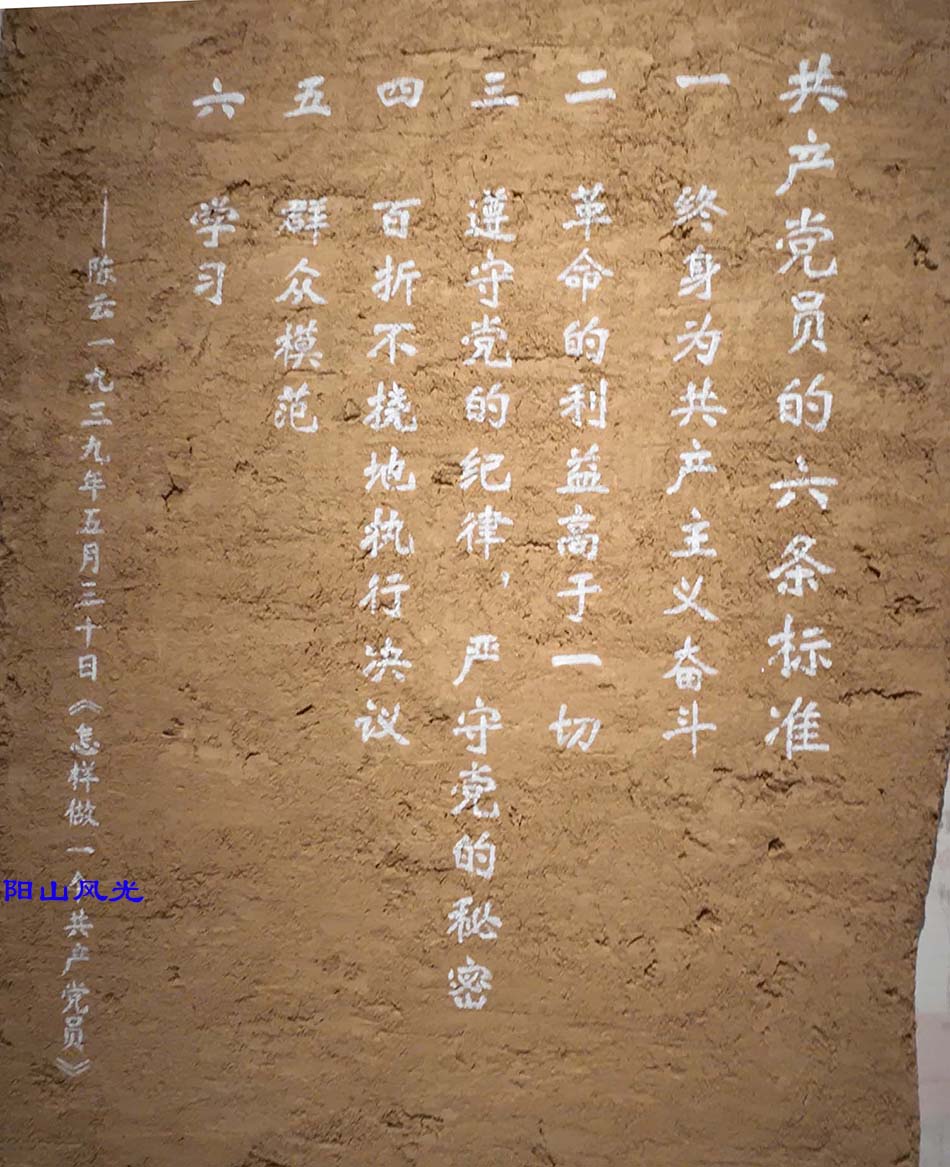 共产党员的六条标准
一 终身为共产主义奋斗
二 革命的利益高于一切
三 遵守党的纪律，严守党的秘密
四 百折不挠地执行决议
五 群众模范
六 学习
——陈云一九三九年五月三十日《怎样做一个共产党员》
阳山风光